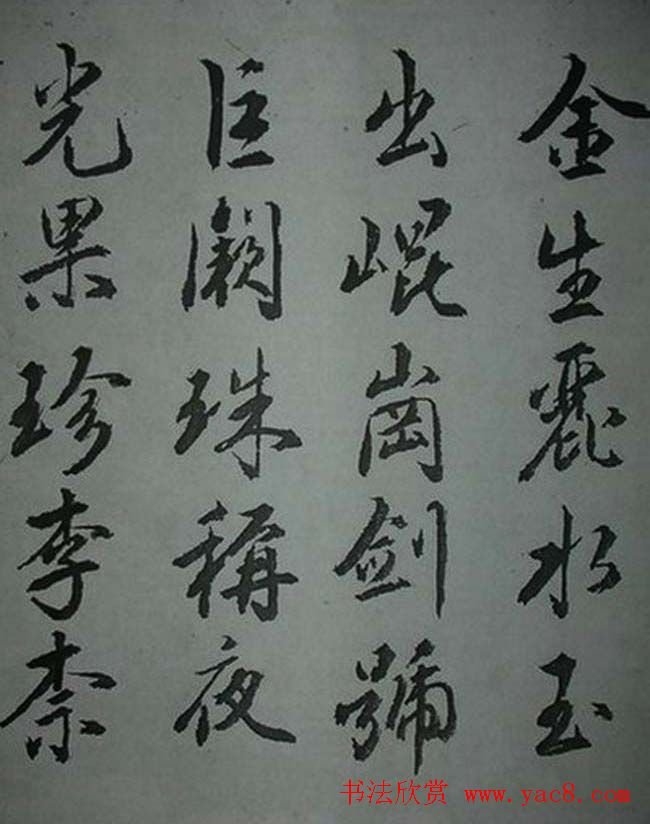 金生麗水玉
出崐崗劍號
巨闕珠稱夜
光果珍李柰
书法欣赏 www.yac8.com